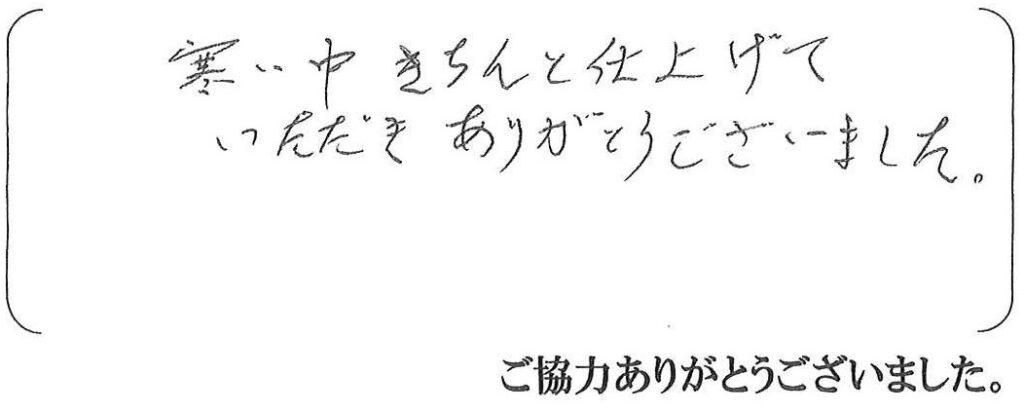 寒い中 きちんと仕上げて
いただき ありがとうございました。
ご協力ありがとうございました。